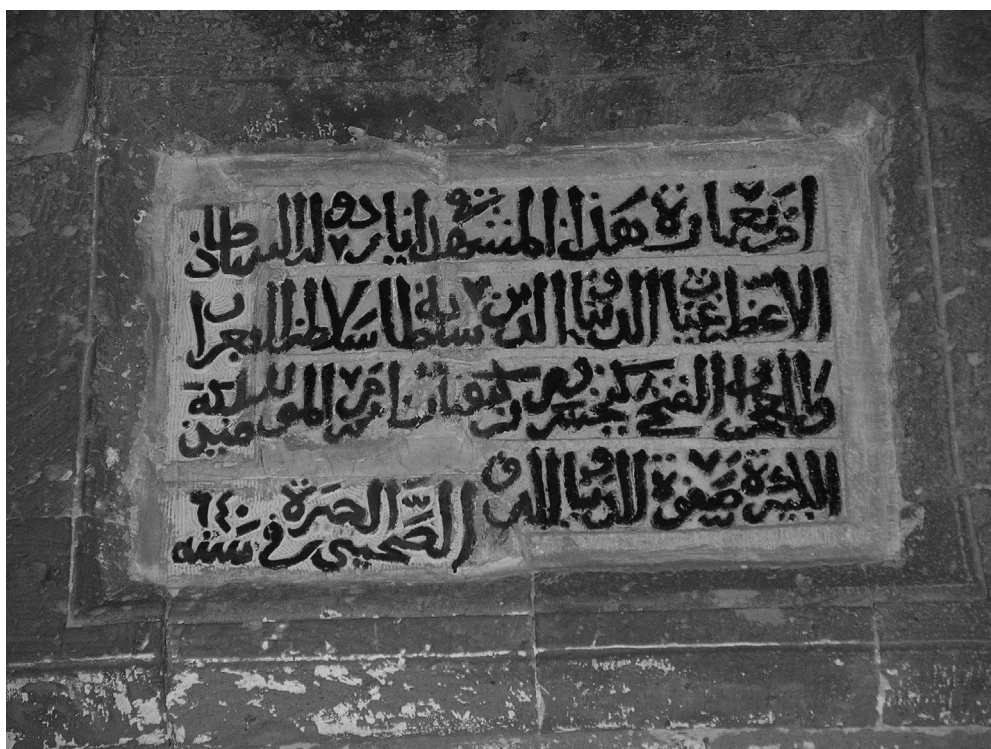 امر بعمارة هذا المشهد ايام دولة السلطان
الاعظم غياث الدنيا والدين سلطان سلاطين العرب
والعجم ابى الفتح كيخسرو بن كيقباد قسيم امير المومنين الملكة
الكبيرة صفوة الدنيا والدين
الصاحبة فى سنة ٦٤٠